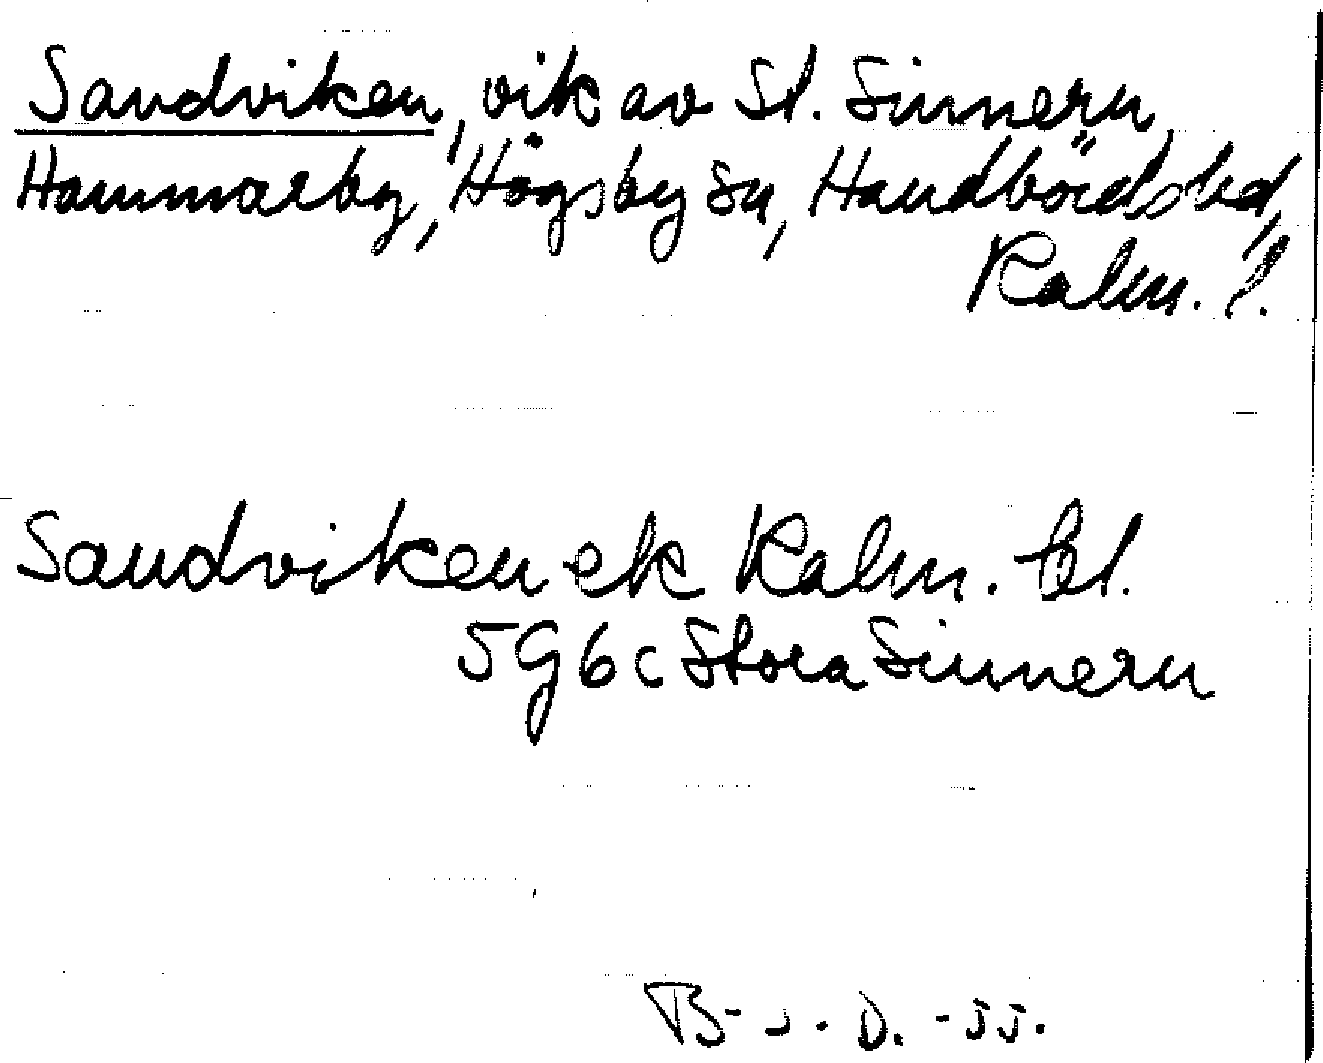 Sandviken, vik av St. Sinnern,
Hammarby, Högsby sn, Handbörds hd,
Kalm. l.
Sandviken ek Kalm. bl.
5G6c Stora Sinnern
B-J. D. -55.